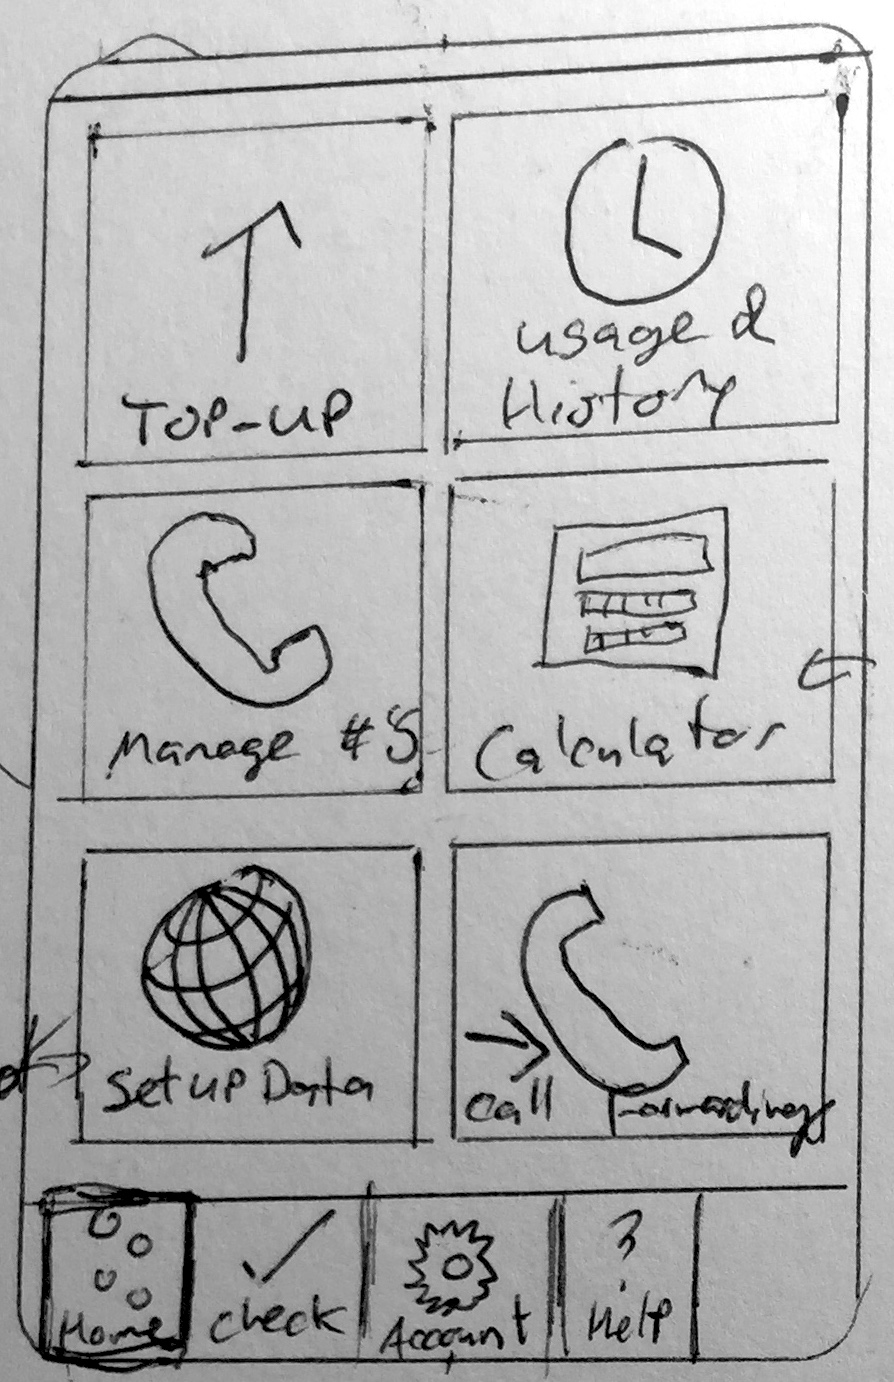 TOP-UP
usage &
History
Manage #'s
Calculator
Setup Data
Call Forwarding
Home
check
Account
?
Help